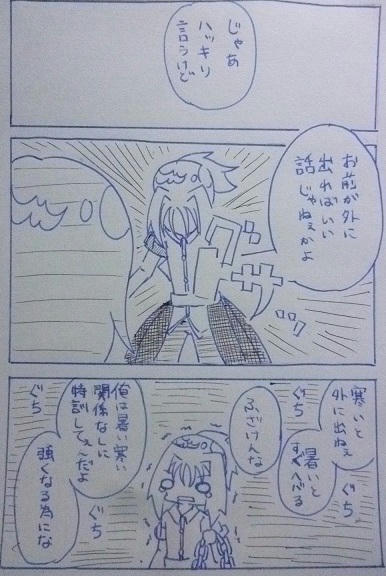 じゃあ
ハッキリ
言うけど
お前が外に
出ればいい
話じゃねぇかよ
グサッ
寒いと
外に出ねぇ
ぐち
暑いと
すぐへばる
ぐち
ふざけんな
俺は暑い寒い
関係なしに
特訓してぇんだよ
ぐち
強くなる為にな
ぐち